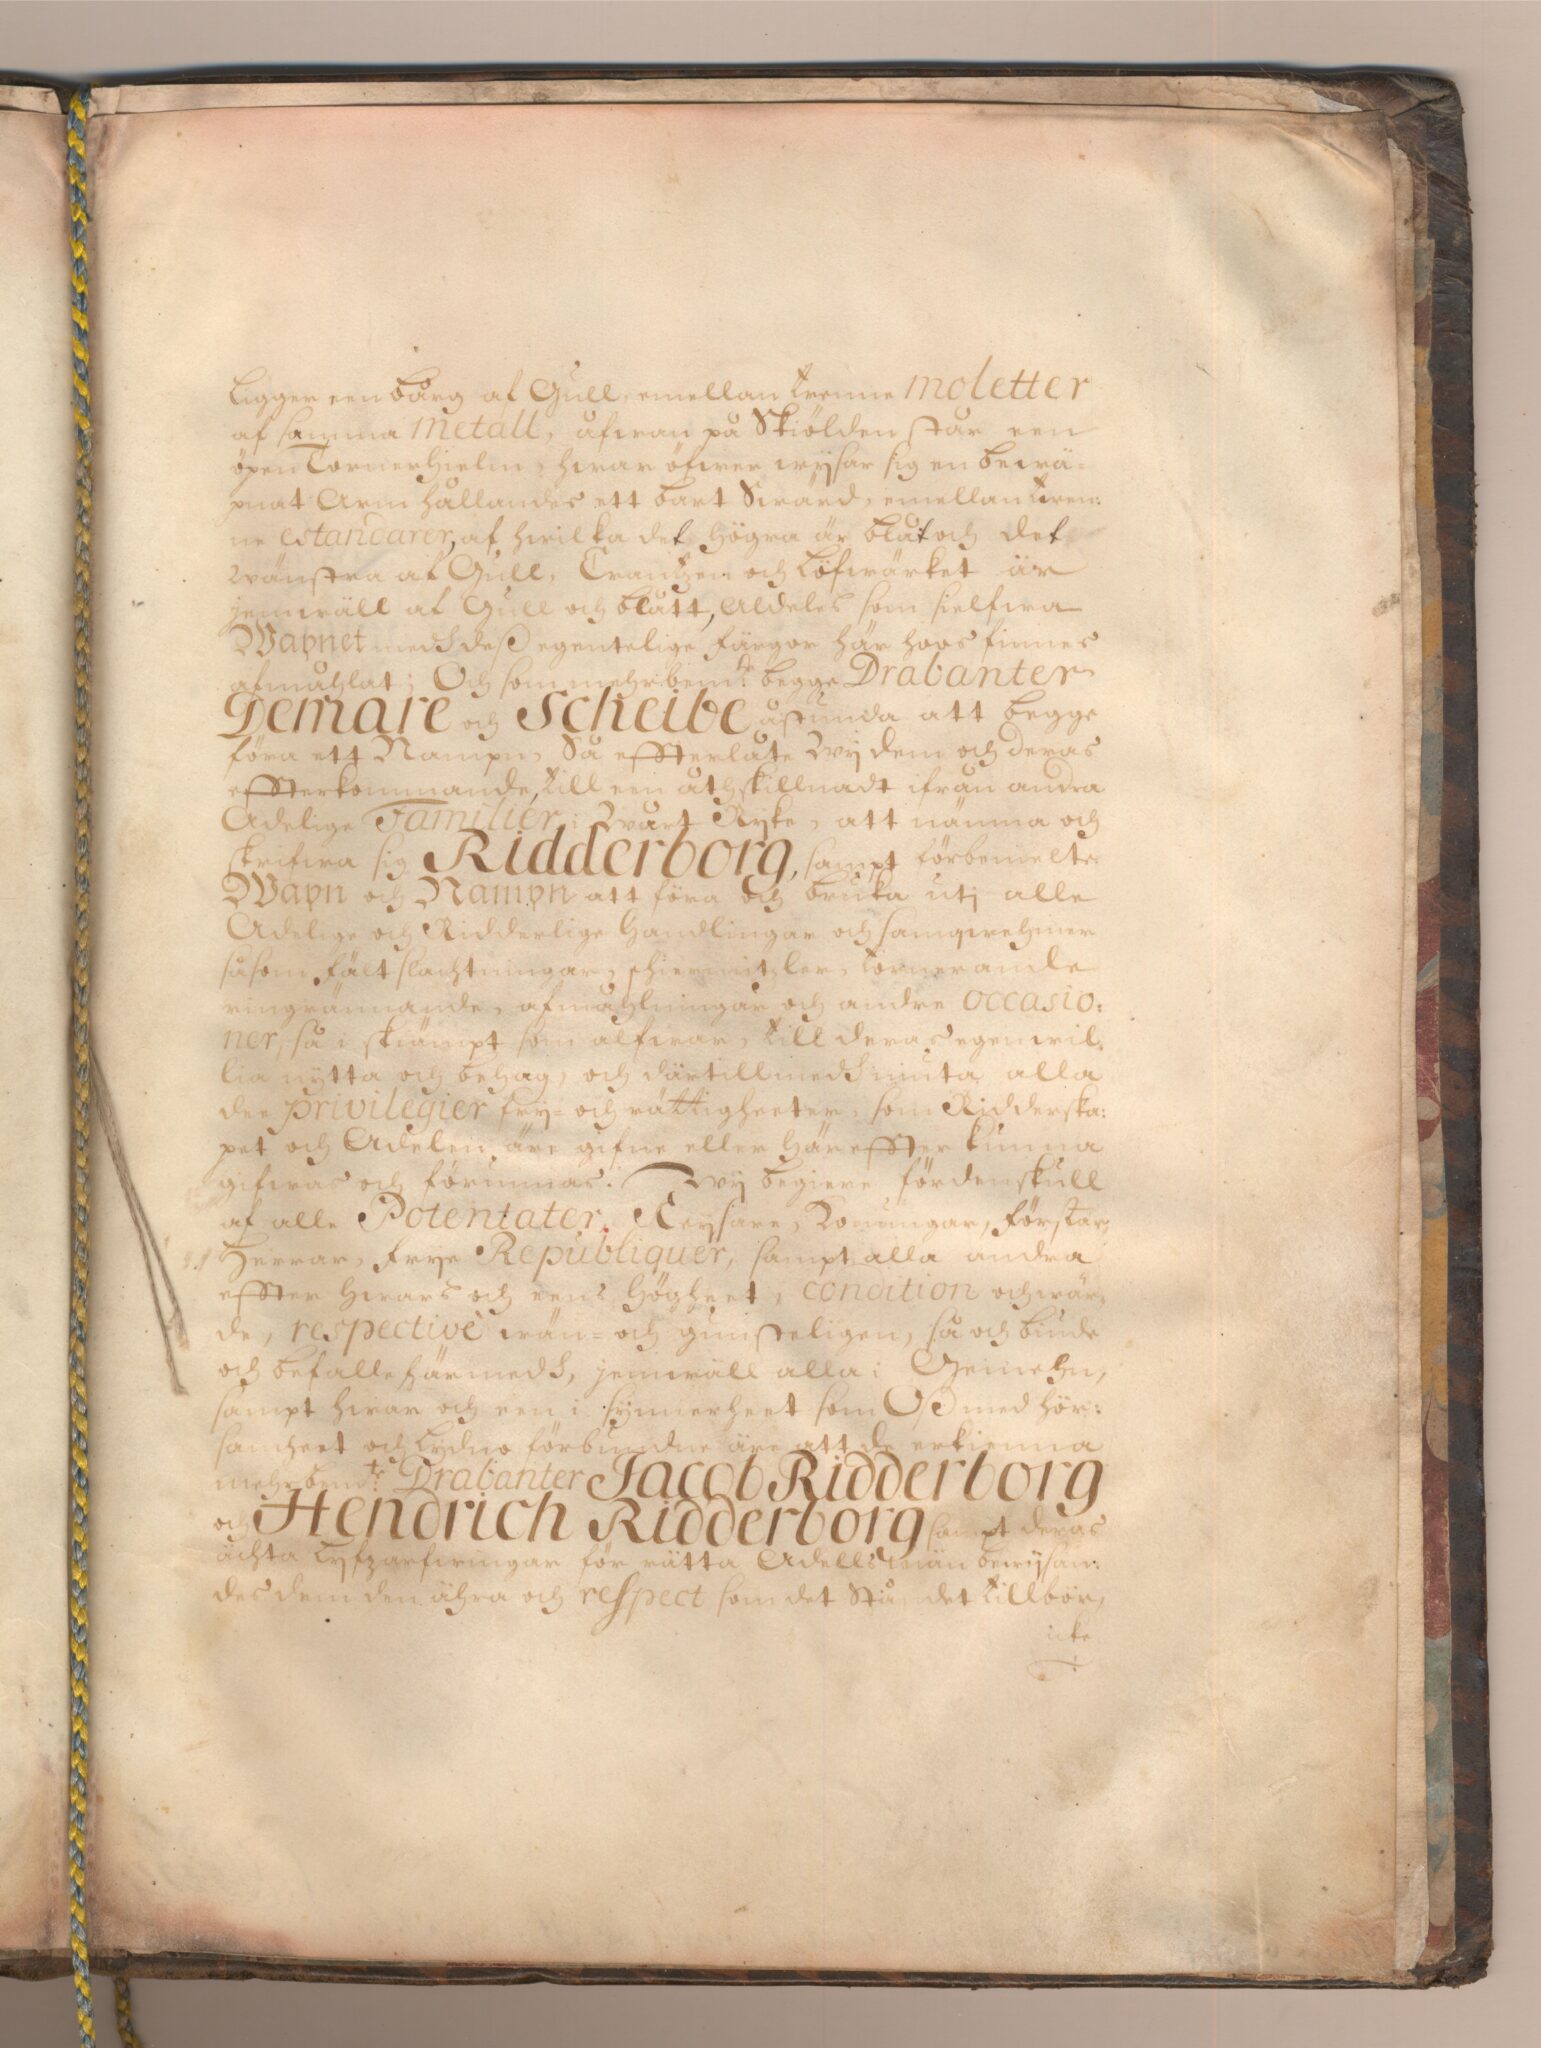 Ligger een bårg af Gull, emellan trenne moletter
af samma metall, åfwan på Skiölden står een
öpen Torner Hielm, hwar öfwer wysar sig en bewä-
pnat Arm hållandes ett bart Swärd, emellan tren:
ne estandarer, af hwilka det högra är blåt och det
wänstra af Gull, Crantzen och Löfwärket är
jemwäll af Gull och blått, aldeles som sielfwa
Wapnet medh deß egentelige färgor här hoos finnes
afmåhlat; Och som mehrbem:de begge Drabanter
Demare och Scheibe åstunda att begge
föra ett Nampn, Så effterlåte Wij dem och deras
effterkommande, till een åthskillnadt ifrån andra
Adelige Familier i Wårt Ryke, att nämna och
skrifwa sig Ridderborg, sampt förbemelte
Wapn och Nampn att föra och bruka utj alle
Adelige och Ridderlige Handlingar och samqwehmer
såsom fältslachtningar, schiermitzler, tornerande
ringrännande, afmåhlningar och andre occasio:
ner, så i skiämpt som alfwar, till deras egen wil:
lia nytta och behag, och därtill medh niuta alla
dee privilegier fry= och rättigheeter, som Ridderska:
pet och Adelen äre gifne eller häreffter kunna
gifwas och förunnas. Wij begiere fördenskull
af alle Potentater, Keysare, Konungar, Förstar,
Herrar, frye Republiquer, sampt alla andra
effter hwars och eens Högheet, condition och wär-
de, respectivè wän= och gunsteligen, så och biude
och befalle härmedh, jemwäll alla i Gemehn,
sampt hwar och een i synnerheet som Oß med hör:
samheet och Lydno förbundne äre att de erkienna
mehrbem:te Drabanter Jacob Ridderborg
och Hendrich Ridderborg sampt deras
ächta Lyfzarfwingar för rätta Adelsmän bewysan:
des dem den ähra och respect som det Ståndet tillbör,
icke